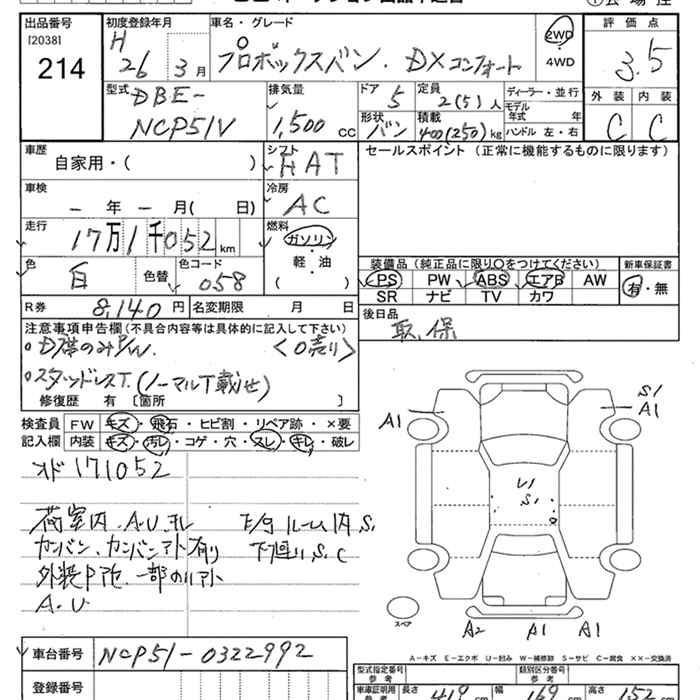 出品番号
[2038]
214
初度登録年月
H
26 3月
車名・グレード
プロボックスバン. DXコンフォート
2WD
・
4WD
評価点
3.5
外装 内装
C C
型式
DBE-
NCP51V
排気量
1,500 cc
ドア
5
定員
2(5)人
形状
バン
積載
400(250)kg
ディーラー・並行
モデル年式 年
ハンドル 左・右
車歴
自家用・( )
シフト
FAT
セールスポイント (正常に機能するものに限ります)
車検
- 年 - 月( 日)
冷房
AC
走行
17万1千052km
燃料
ガソリン
・
軽・油
( )
色
白
色替
色コード
058
装備品 (純正品に限り○をつけてください)
PS PW ABS エアB AW
SR ナビ TV カワ
新車保証書
有・無
R券 8,140円
名変期限 月 日
後日品
取,保
注意事項申告欄(不具合内容等は具体的に記入して下さい)
。D席のみP/W. <0売り>
。スタッドレスT. (ノーマルT載せ)
修復歴 有 〔箇所 〕
検査員 FW キズ・飛石・ヒビ割・リペア跡・×要
記入欄 内装 キズ・汚レ・コゲ・穴・スレ・キレ・破レ
オド171052
荷室内.A.U.ヨレ E/gルーム内S.
カンバン、カンバンアト有り 下回りS.C
外装P
一部
A.U
A1
S1
A1
U1
S1
スペア
A2 A1 A1
A-キズ E-エクボ U-凹み W-補修跡 S-サビ C-腐食 ××-交換済
車台番号 NCP51-0322992
登録番号
型式指定番号
参考
類別区分番号
参考
車庫証明用
参考
長さ 419cm 幅 169cm 高さ 152cm